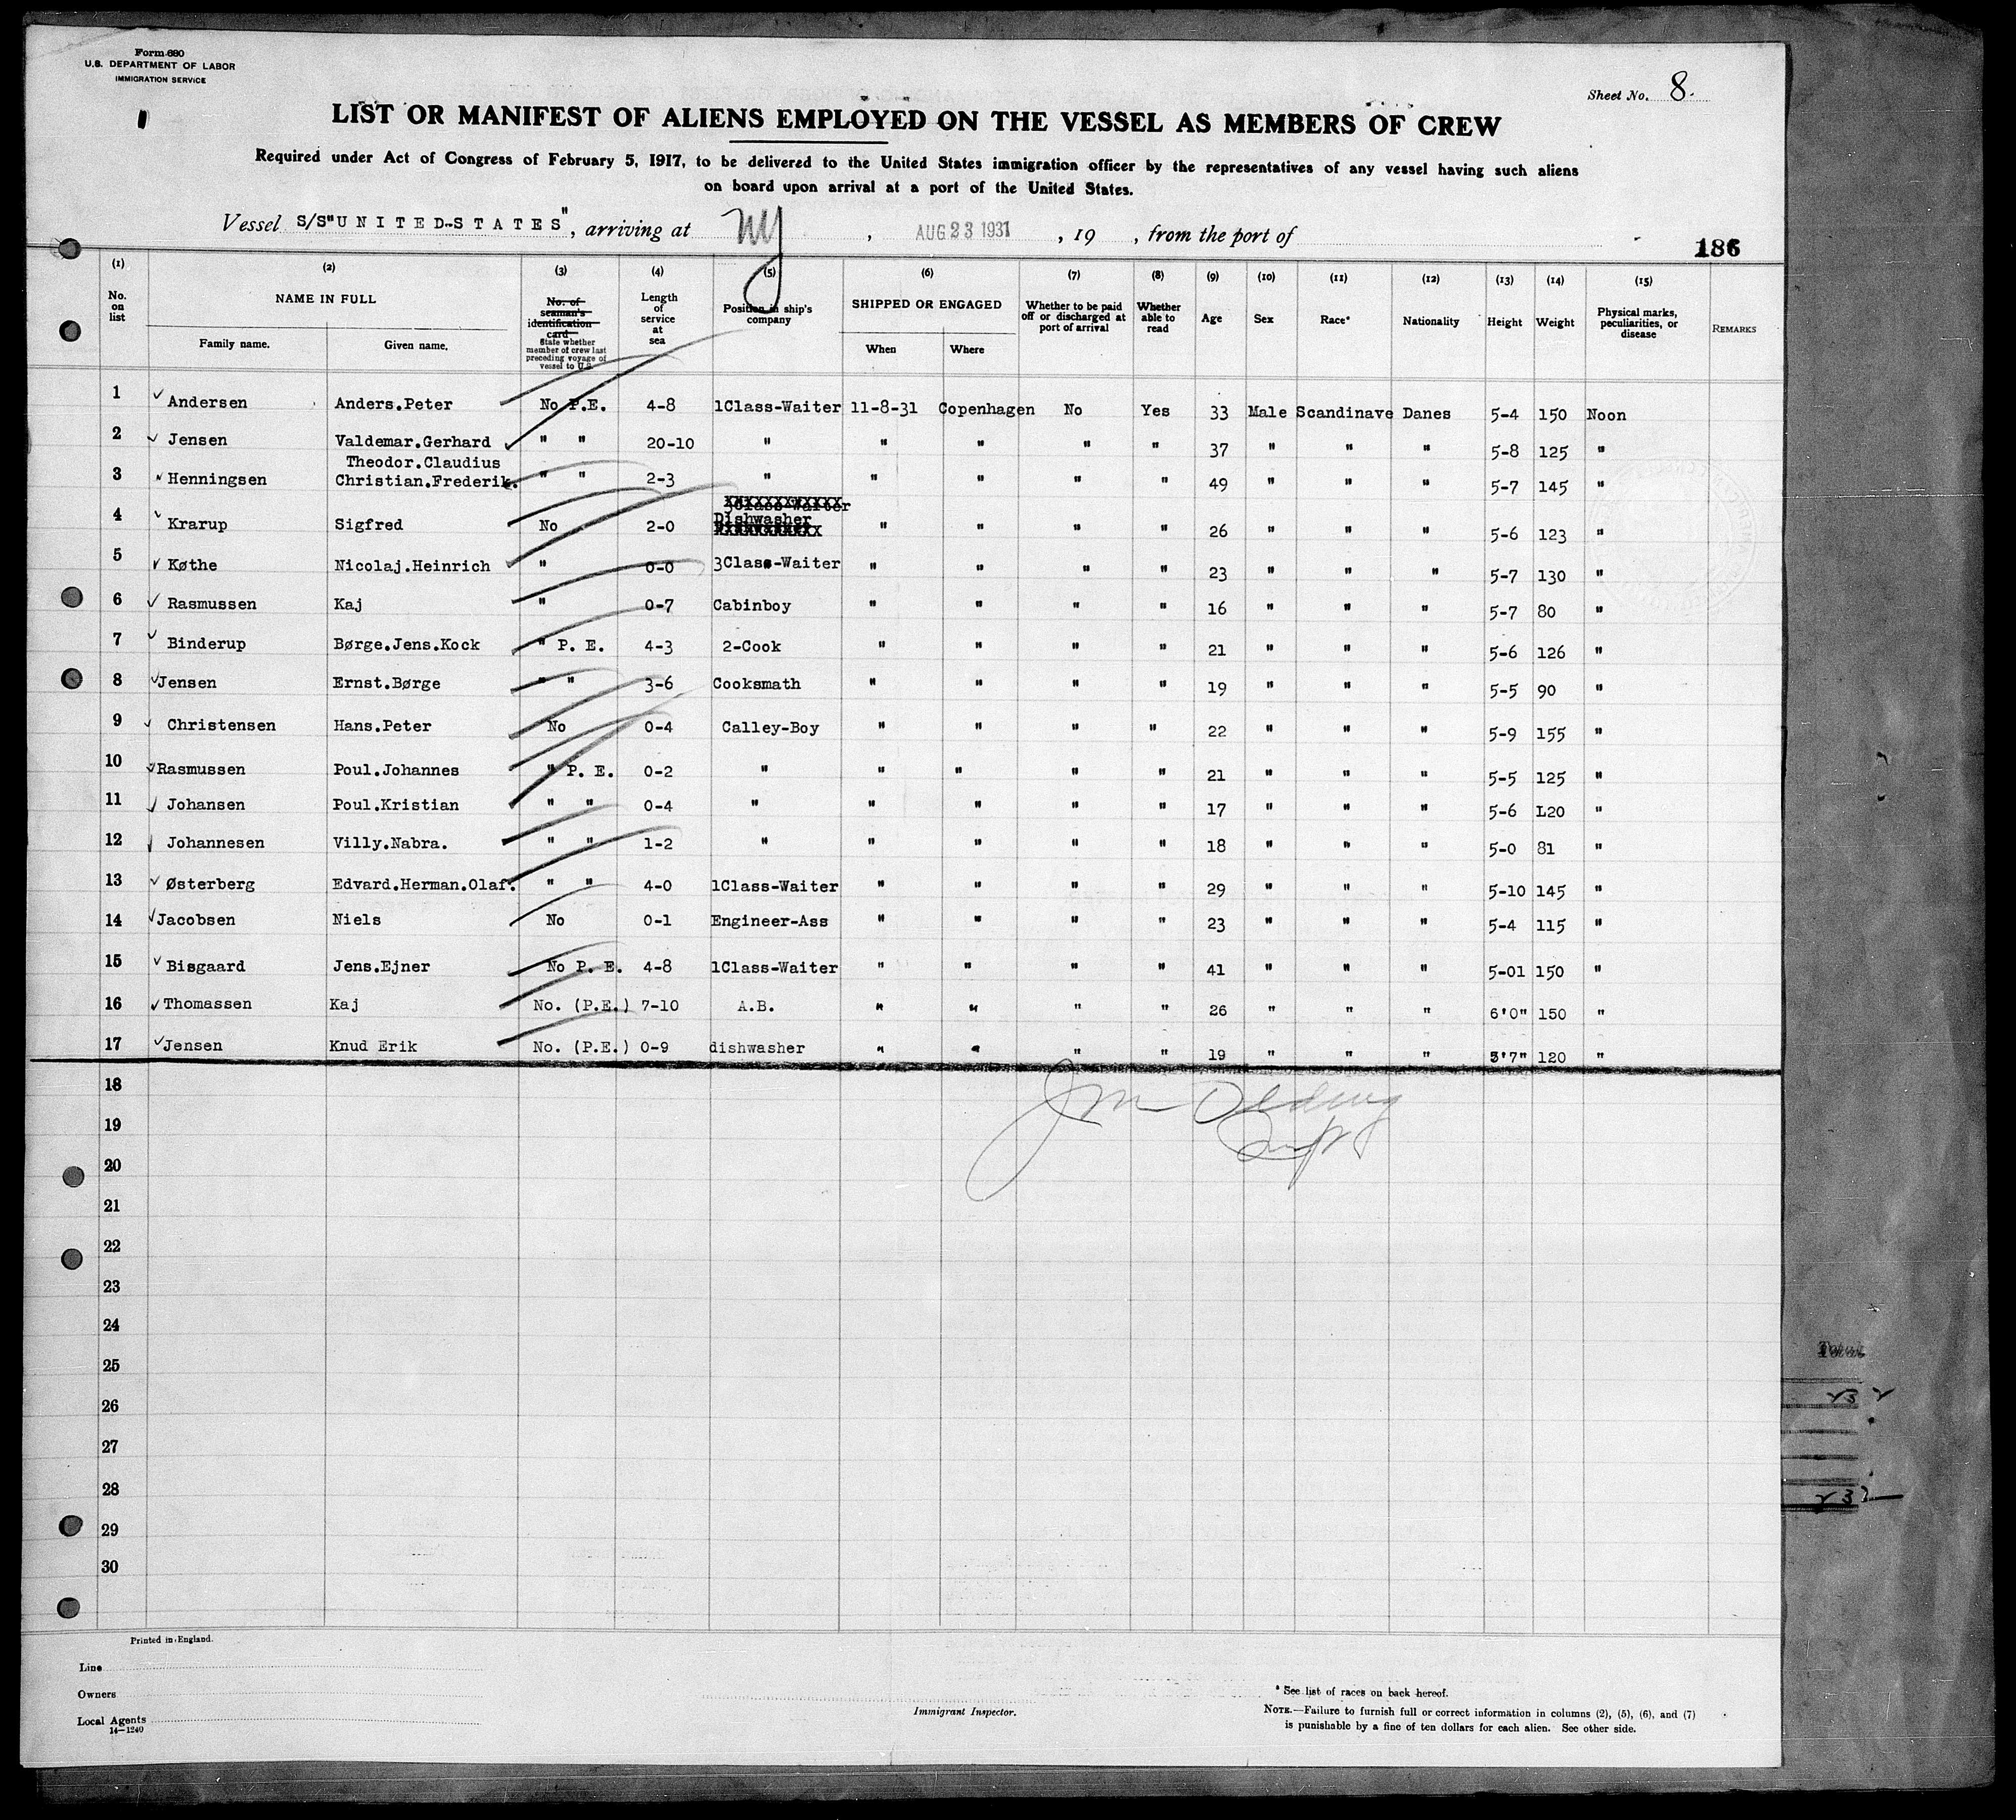 Form 680
U.S. DEPARTMENT OF LABOR
IMMIGRATION SERVICE
Sheet No. 8.
LIST OR MANIFEST OF ALIENS EMPLOYED ON THE VESSEL AS MEMBERS OF CREW
Required under Act of Congress of February 5, 1917, to be delivered to the United States immigration officer by the representatives of any vessel having such aliens
on board upon arrival at a port of the United States.
Vessel S/S"UNITED-STATES", arriving at NY, AUG 23 1931, 19 , from the port of
186
(1) (2) (3) (4) (5) (6) (7) (8) (9) (10) (11) (12) (13) (14) (15)
No. on list NAME IN FULL Family name. Given name. No. of seaman's identification card State whether member of crew last preceding voyage of vessel to U.S. Length of service at sea Position in ship's company SHIPPED OR ENGAGED When Where Whether to be paid off or discharged at port of arrival Whether able to read Age Sex Race* Nationality Height Weight Physical marks, peculiarities, or disease REMARKS
1 Andersen Anders.Peter No P.E. 4-8 1Class-Waiter 11-8-31 Copenhagen No Yes 33 Male Scandinave Danes 5-4 150 Noon
2 Jensen Valdemar.Gerhard " " 20-10 " " " " " 37 " " " 5-8 125 "
Theodor.Claudius
3 Henningsen Christian.Frederik. " " 2-3 " " " " " 49 " " " 5-7 145 "
3Class-Waiter
4 Krarup Sigfred No 2-0 Dishwasher " " " " 26 " " " 5-6 123 "
5 Køthe Nicolaj.Heinrich " 0-0 3Class-Waiter " " " " 23 " " " 5-7 130 "
6 Rasmussen Kaj " 0-7 Cabinboy " " " " 16 " " " 5-7 80 "
7 Binderup Børge.Jens.Kock " P. E. 4-3 2-Cook " " " " 21 " " " 5-6 126 "
8 Jensen Ernst.Børge " " 3-6 Cooksmath " " " " 19 " " " 5-5 90 "
9 Christensen Hans.Peter No 0-4 Calley-Boy " " " " 22 " " " 5-9 155 "
10 Rasmussen Poul.Johannes " P. E. 0-2 " " " " " 21 " " " 5-5 125 "
11 Johansen Poul.Kristian " " 0-4 " " " " " 17 " " " 5-6 L20 "
12 Johannesen Villy.Nabra. " " 1-2 " " " " " 18 " " " 5-0 81 "
13 Østerberg Edvard.Herman.Olaf. " " 4-0 1Class-Waiter " " " " 29 " " " 5-10 145 "
14 Jacobsen Niels No 0-1 Engineer-Ass " " " " 23 " " " 5-4 115 "
15 Bisgaard Jens.Ejner No P. E. 4-8 1Class-Waiter " " " " 41 " " " 5-01 150 "
16 Thomassen Kaj No. (P.E.) 7-10 A.B. " " " " 26 " " " 6'0" 150 "
17 Jensen Knud Erik No. (P.E.) 0-9 dishwasher " " " " 19 " " " 5'7" 120 "
18
19
20
21
22
23
24
25
26
27
28
29
30
Printed in England.
Line
Owners
Local Agents
14-1240
Immigrant Inspector.
* See list of races on back hereof.
NOTE.—Failure to furnish full or correct information in columns (2), (5), (6), and (7)
is punishable by a fine of ten dollars for each alien. See other side.